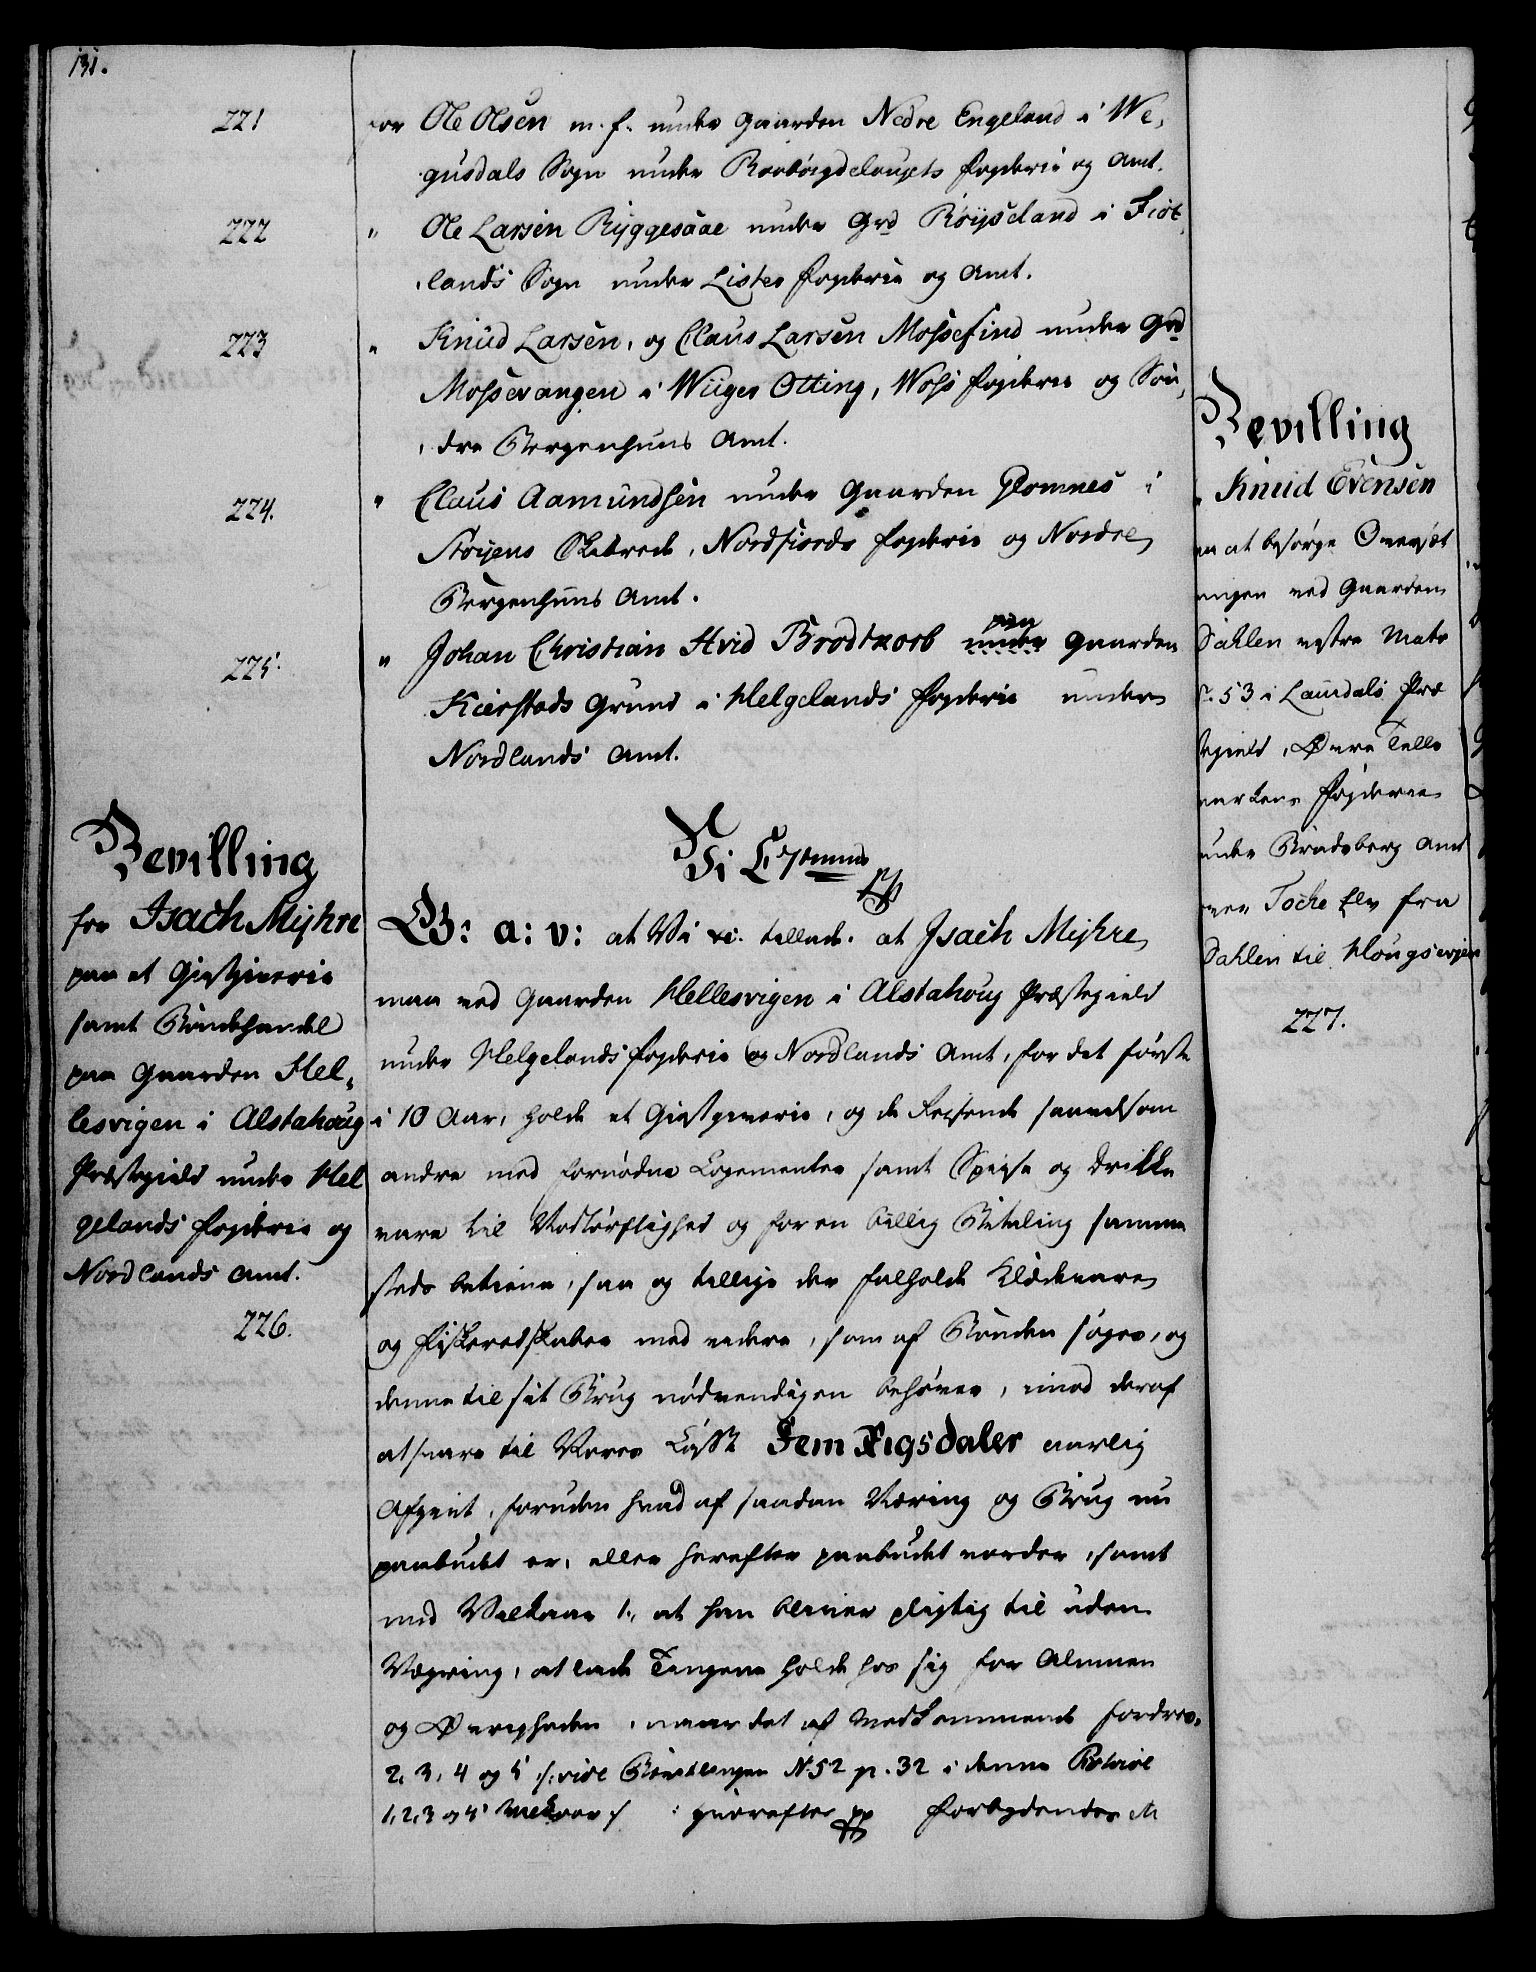 131.
221
for Ole Olsen m. f. under Gaarden Nedre Engeland i We,
gusdals Sogn under Raabøigdelaugets Fogderie og Amt.
222
" Ole Larsen Ryggesaae under Grd Röyseland i Fiot,
,lands Sogn under Lister Fogderie og Amt.
223
" Knud Larsen, og Claus Larsen Mossefind under Grd
Mossevangen i Wiiger Otting, Woss Fogderie og Søn,
,dre Bergenhuus Amt.
224.
" Claus Aamundsen under Gaarden Glomnes i
Stryens Skibrede, Nordfiords Fogderie og Nordre
Bergenhuus Amt.
225.
" Johan Christian Hvid Brodtkorb under paa Gaarden
Kierstads Grund i Helgelands Fogderie under
Nordlands Amt.
Bevilling
for Isach Myhre
paa et Giestgiverie
samt Bondehandel
paa Gaarden Hel,
lesvigen i Alstahoug
Præstegield under Hel
gelands Fogderie og
Nordlands Amt.
226.
Vi Christian
G: a: v: at Vi tillade. at Isach Myhre
maa ved Gaarden Hellesvigen i Alstahoug Præstegield
under Helgelands Fogderie og Nordlands Amt, for det første
i 10 Aar, holde et Giestgiverie, og de Reisende saavelsom
andre med fornødne Logementer samt Spiise og Drikke
vare til Nodtørftighed og for en billig Betaling samme
steds betiene, saa og tillige der falholde Klædevare
og Fiskeredskaber med videre, som af Bonden søges, og
denne til sit Brug nødvendigen behøver, imod deraf
at svare til Vores Casse Fem Rigsdaler aarlig
Afgivt, foruden hvad af saadan Næring og Brug nu
paabudt er, eller herefter paabudet vorder, samt
med Vilkaar 1., at han bliver pligtig til uden
Vægring, at lade Tingene holde hos sig for Almuen
og Øvrigheden, naar det af Vedkommende fordres,
2, 3, 4 og 5 /: vide Bevillingen No 52 p. 32 i denne Protocol
1, 2, 3 og 4 Vilkaar :/ hvorefter pp Forbydendes
Bevilling
" Knud Evensen
paa at besørge Oversæt
ningen ved Gaarden
Dahlen vestre Matr
No. 53 i Laurdals Præ
stegield, Øvre Telle
markens Fogderie
under Bradsberg Amt
over Tocke Elv fra
Dahlen til Hougsevjen
227.